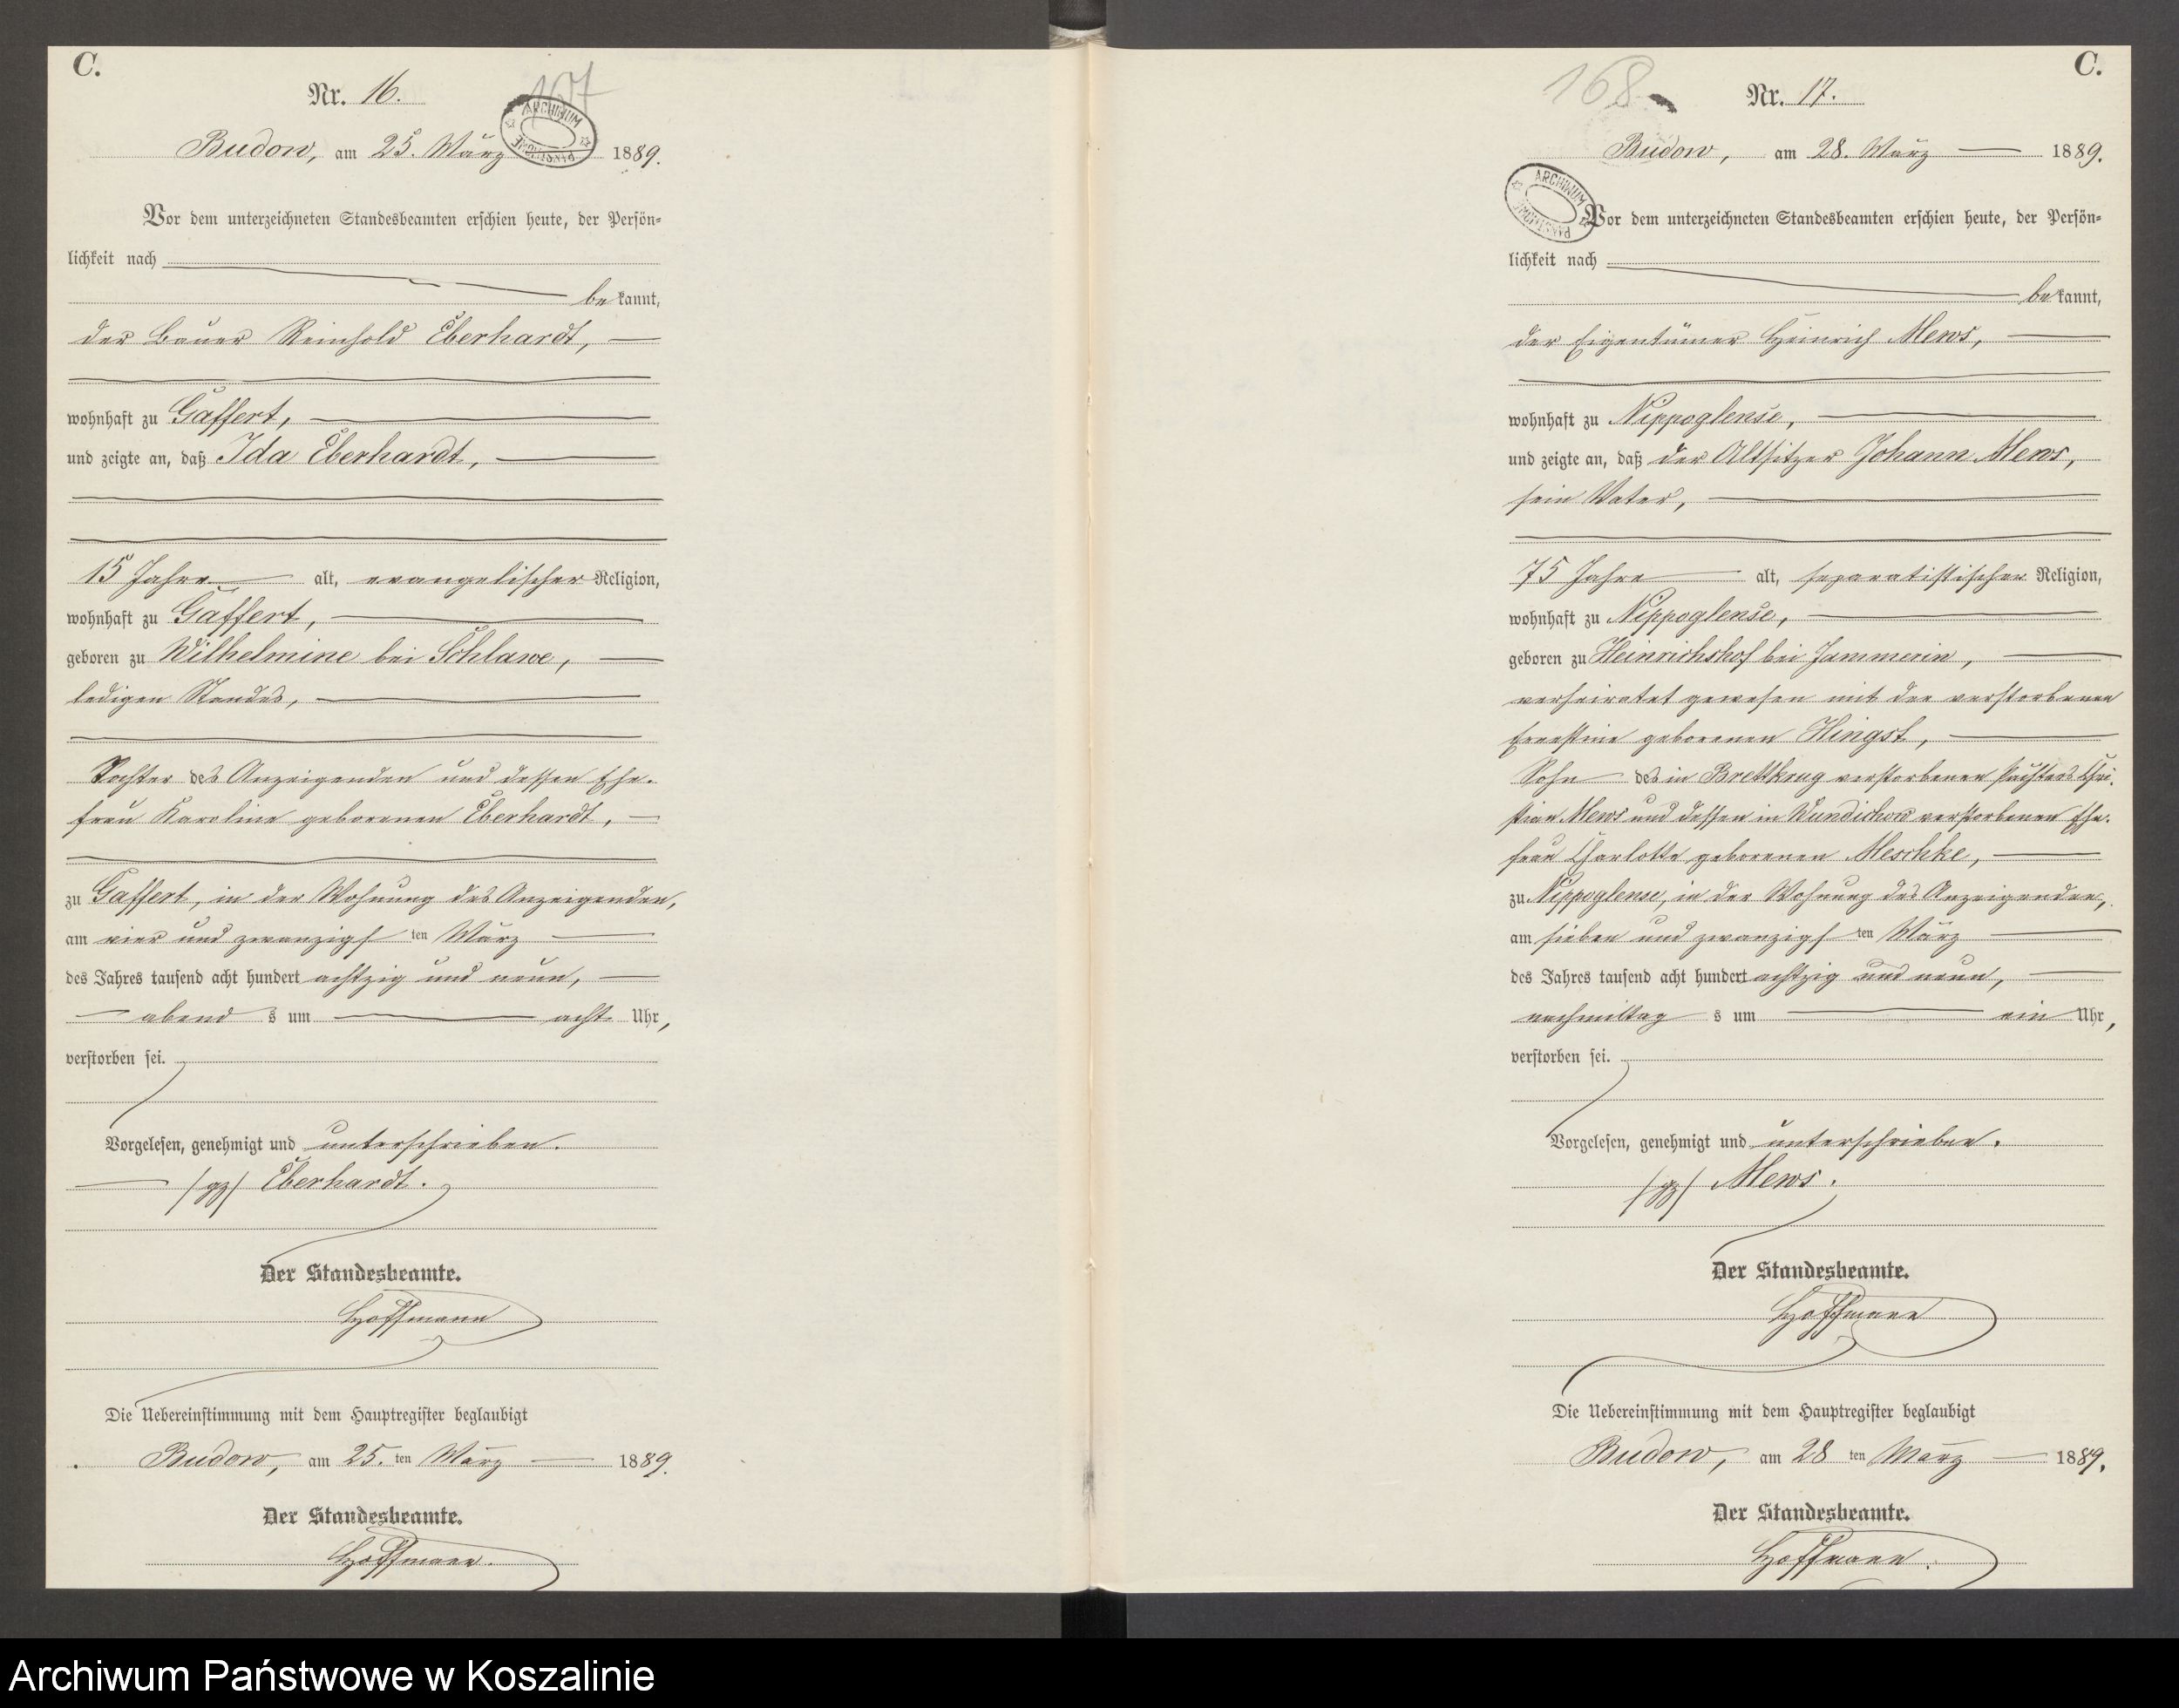 C.
Nr. 16.
167
ARCHIWUM
Budow, am 25. März 1889.
Vor dem unterzeichneten Standesbeamten erschien heute, der Persön-
lichkeit nach
bekannt,
der Bauer Reinhold Eberhardt,
wohnhaft zu Gaffert,
und zeigte an, daß Ida Eberhardt,
15 Jahre alt, evangelischer Religion,
wohnhaft zu Gaffert,
geboren zu Wilhelmine bei Schlawe,
ledigen Standes,
Tochter des Anzeigenden und dessen Ehe-
frau Karoline geborenen Eberhardt,
zu Gaffert, in der Wohnung des Anzeigenden,
am vier und zwanzigsten März
des Jahres tausend acht hundert achtzig und neun,
abends um acht Uhr,
verstorben sei.
Vorgelesen, genehmigt und unterschrieben.
/gz/ Eberhardt.
Der Standesbeamte.
Hoffmann
Die Uebereinstimmung mit dem Hauptregister beglaubigt
Budow, am 25. ten März 1889.
Der Standesbeamte.
Hoffmann.
C.
168
Nr. 17.
Budow, am 28. März 1889.
ARCHIWUM
Vor dem unterzeichneten Standesbeamten erschien heute, der Persön-
lichkeit nach
bekannt,
der Eigentümer Heinrich Mews,
wohnhaft zu Nippoglense,
und zeigte an, daß der Altsitzer Johann Mews,
sein Vater,
75 Jahre alt, separatistischer Religion,
wohnhaft zu Nippoglense,
geboren zu Heinrichshof bei Jammerin,
verheiratet gewesen mit der verstorbenen
Ernestine geborenen Hingst,
Sohn des in Brettkrug verstorbenen Pächters Chri-
stian Mews und dessen in Wundichow verstorbenen Ehe-
frau Charlotte geborenen Meschke,
zu Nippoglense, in der Wohnung des Anzeigenden,
am sieben und zwanzigsten März
des Jahres tausend acht hundert achtzig und neun,
nachmittags um ein Uhr,
verstorben sei.
Vorgelesen, genehmigt und unterschrieben.
/gz/ Mews.
Der Standesbeamte.
Hoffmann
Die Uebereinstimmung mit dem Hauptregister beglaubigt
Budow, am 28 ten März 1889.
Der Standesbeamte.
Hoffmann.
Archiwum Państwowe w Koszalinie